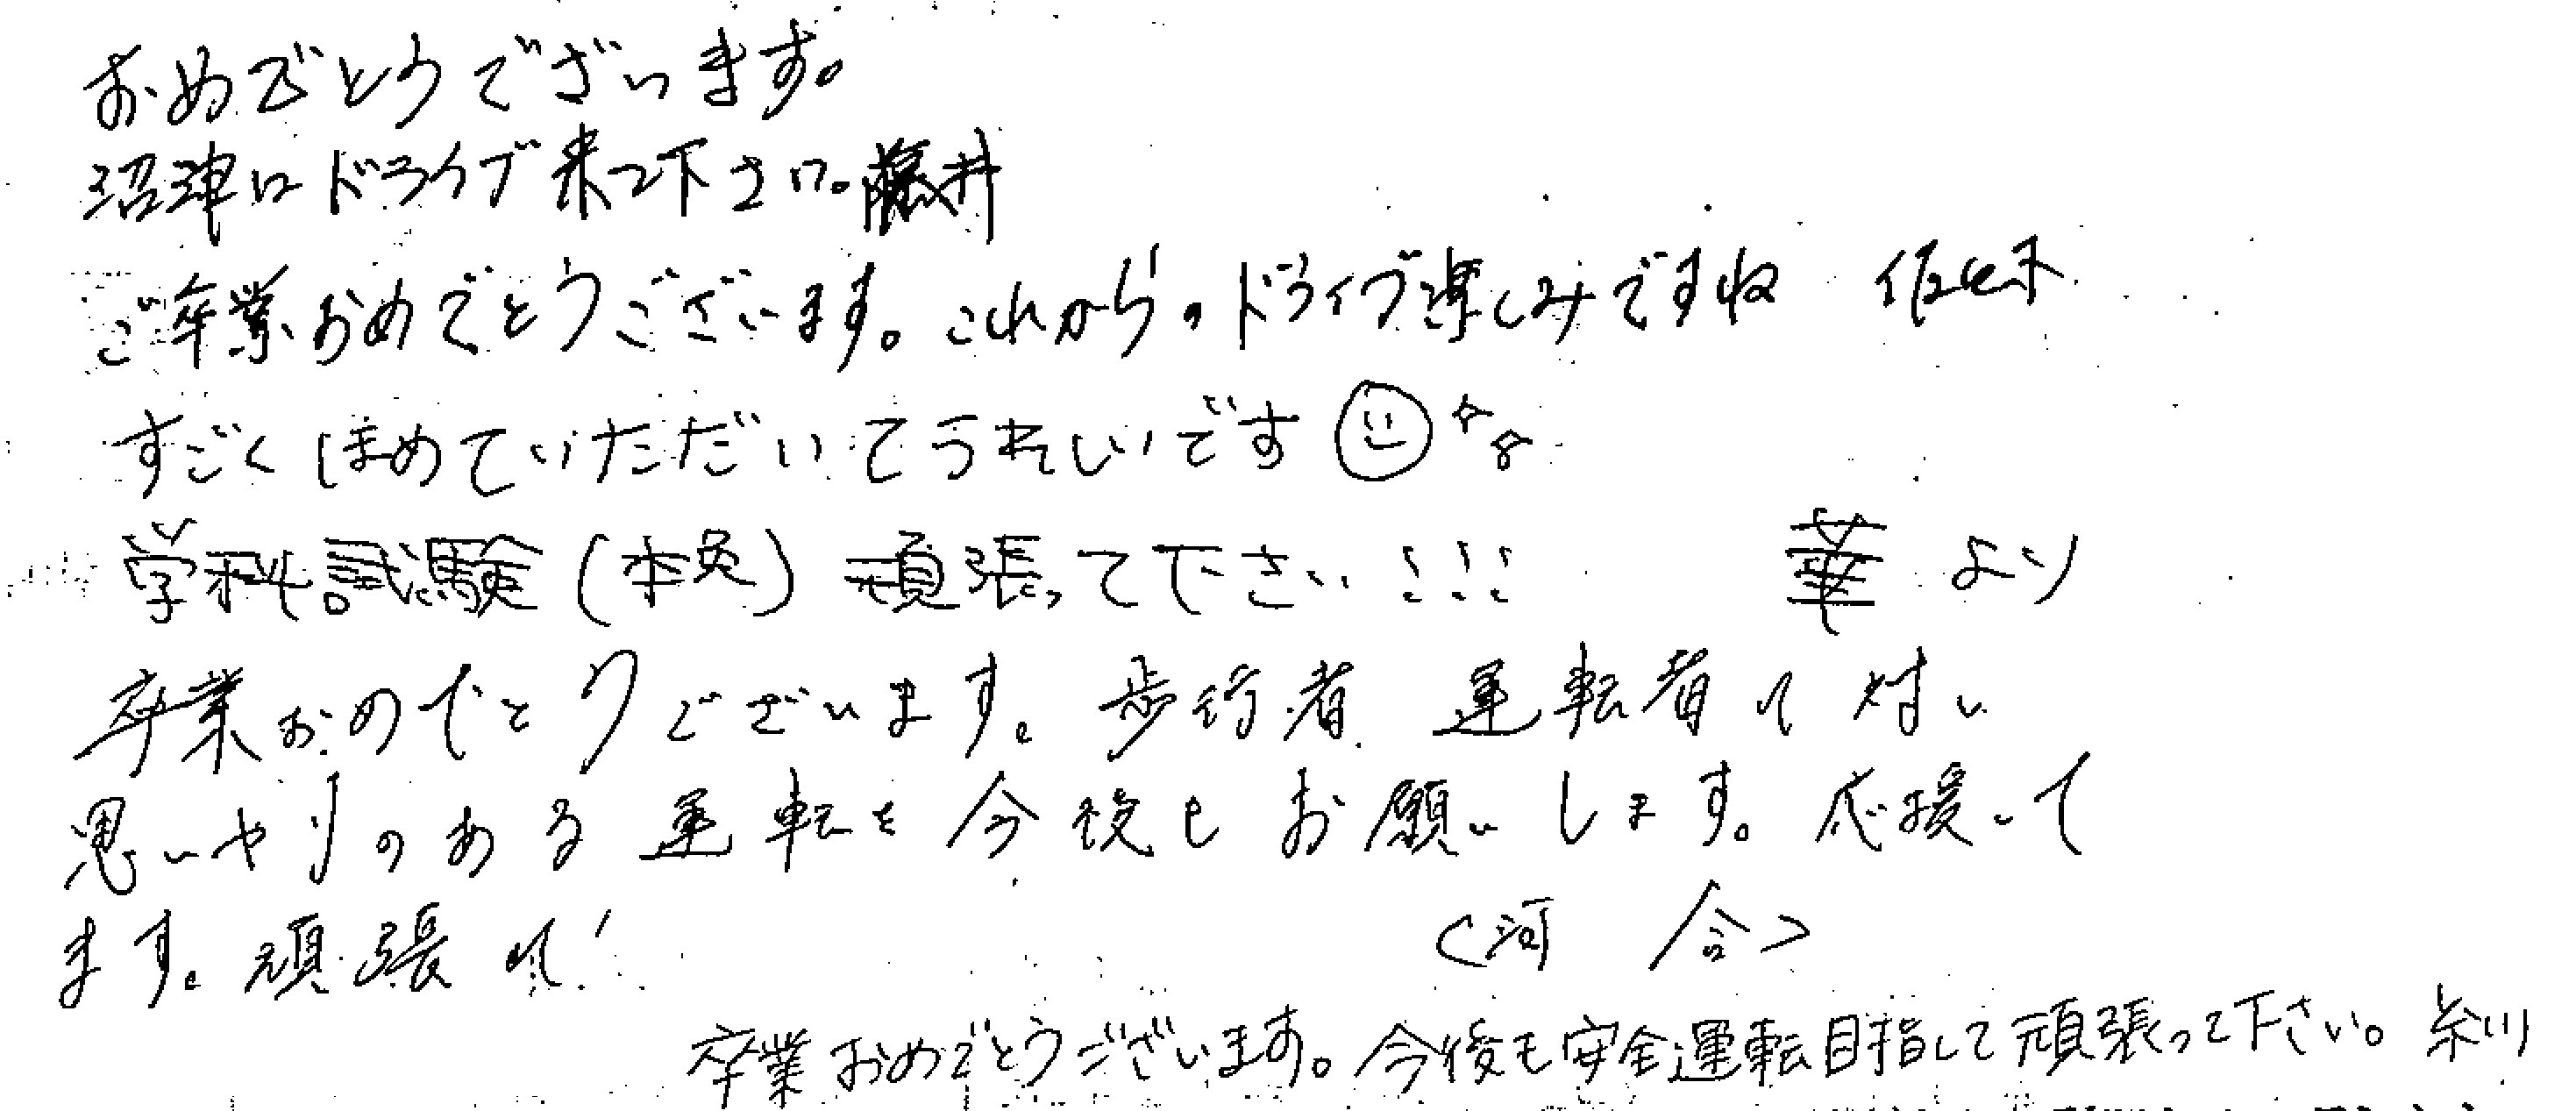 おめでとうございます。
沼津にドライブ来て下さい。藤井
ご卒業おめでとうございます。これからのドライブ楽しみですね 佐々木
すごくほめていただいてうれしいです
学科試験(本免)頑張って下さい!!! 華より
卒業おめでとうございます。歩行者 運転者に対し
思いやりのある運転を今後もお願いします。応援して
ます。頑張れ!
<河合>
卒業おめでとうございます。今後も安全運転目指して頑張って下さい。糸川